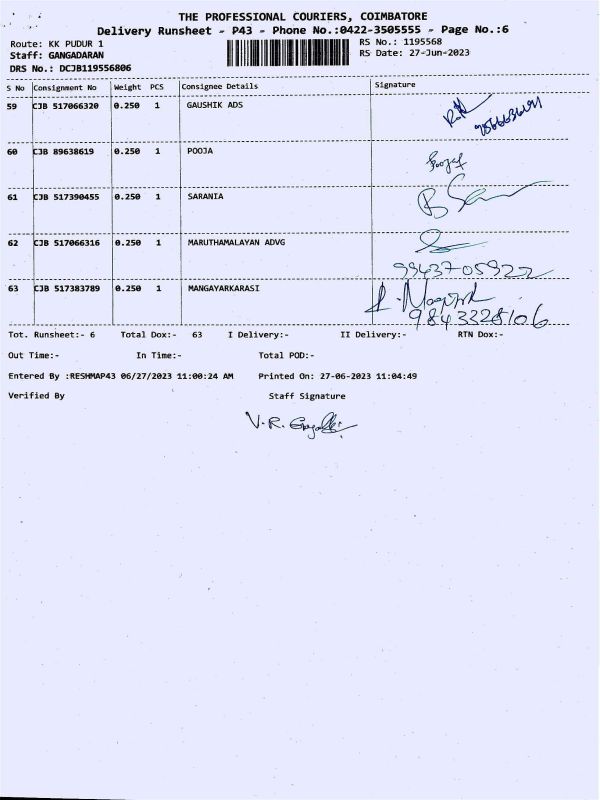 THE PROFESSIONAL COURIERS, COIMBATORE
Delivery Runsheet - P43 - Phone No.:0422-3505555 - Page No.:6
Route: KK PUDUR 1 RS No.: 1195568
Staff: GANGADARAN RS Date: 27-Jun-2023
DRS No.: DCJB119556806
S No Consignment No Weight PCS Consignee Details Signature
59 CJB 517066320 0.250 1 GAUSHIK ADS
60 CJB 89638619 0.250 1 POOJA
61 CJB 517390455 0.250 1 SARANIA
62 CJB 517066316 0.250 1 MARUTHAMALAYAN ADVG
9943705922
63 CJB 517383789 0.250 1 MANGAYARKARASI
9843328106
Tot. Runsheet:- 6 Total Dox:- 63 I Delivery:- II Delivery:- RTN Dox:-
Out Time:- In Time:- Total POD:-
Entered By :RESHMAP43 06/27/2023 11:00:24 AM Printed On: 27-06-2023 11:04:49
Verified By Staff Signature
V.R.